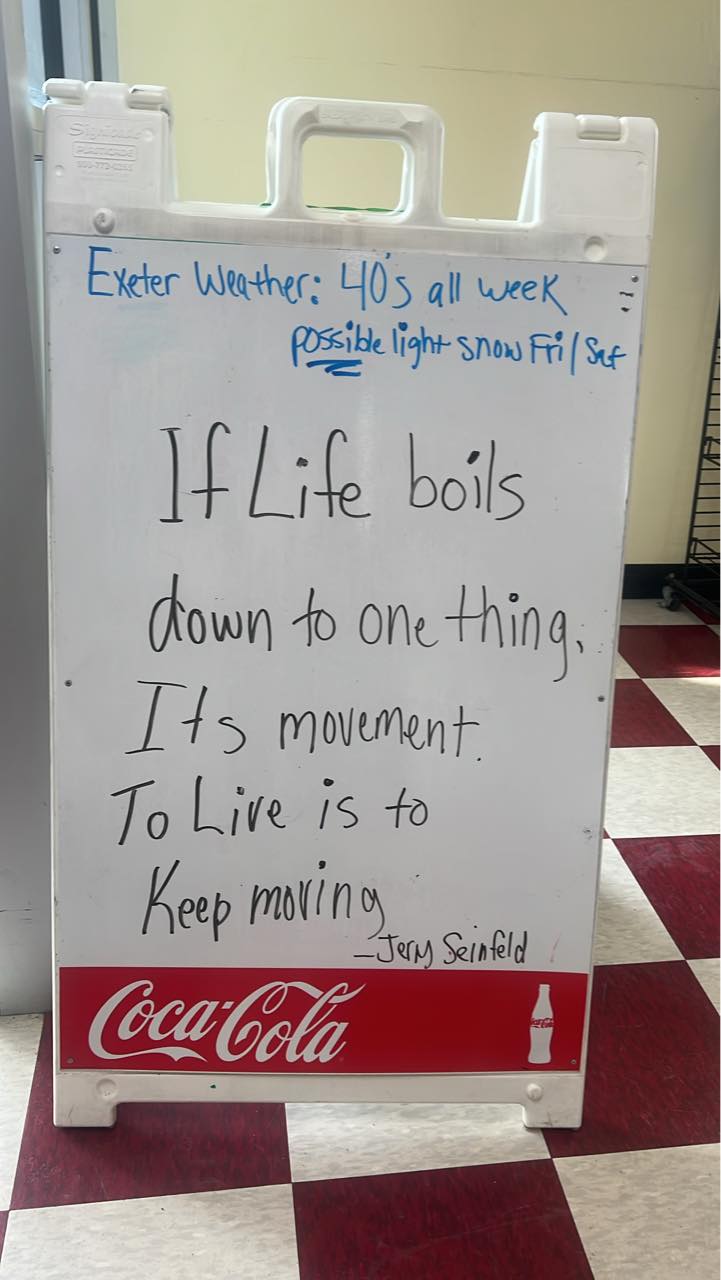 Signicade
PLASTICADE
Exeter Weather: 40's all week
possible light snow Fri/Sat
If Life boils
down to one thing,
Its movement.
To Live is to
Keep moving
-Jerry Seinfeld
Coca-Cola